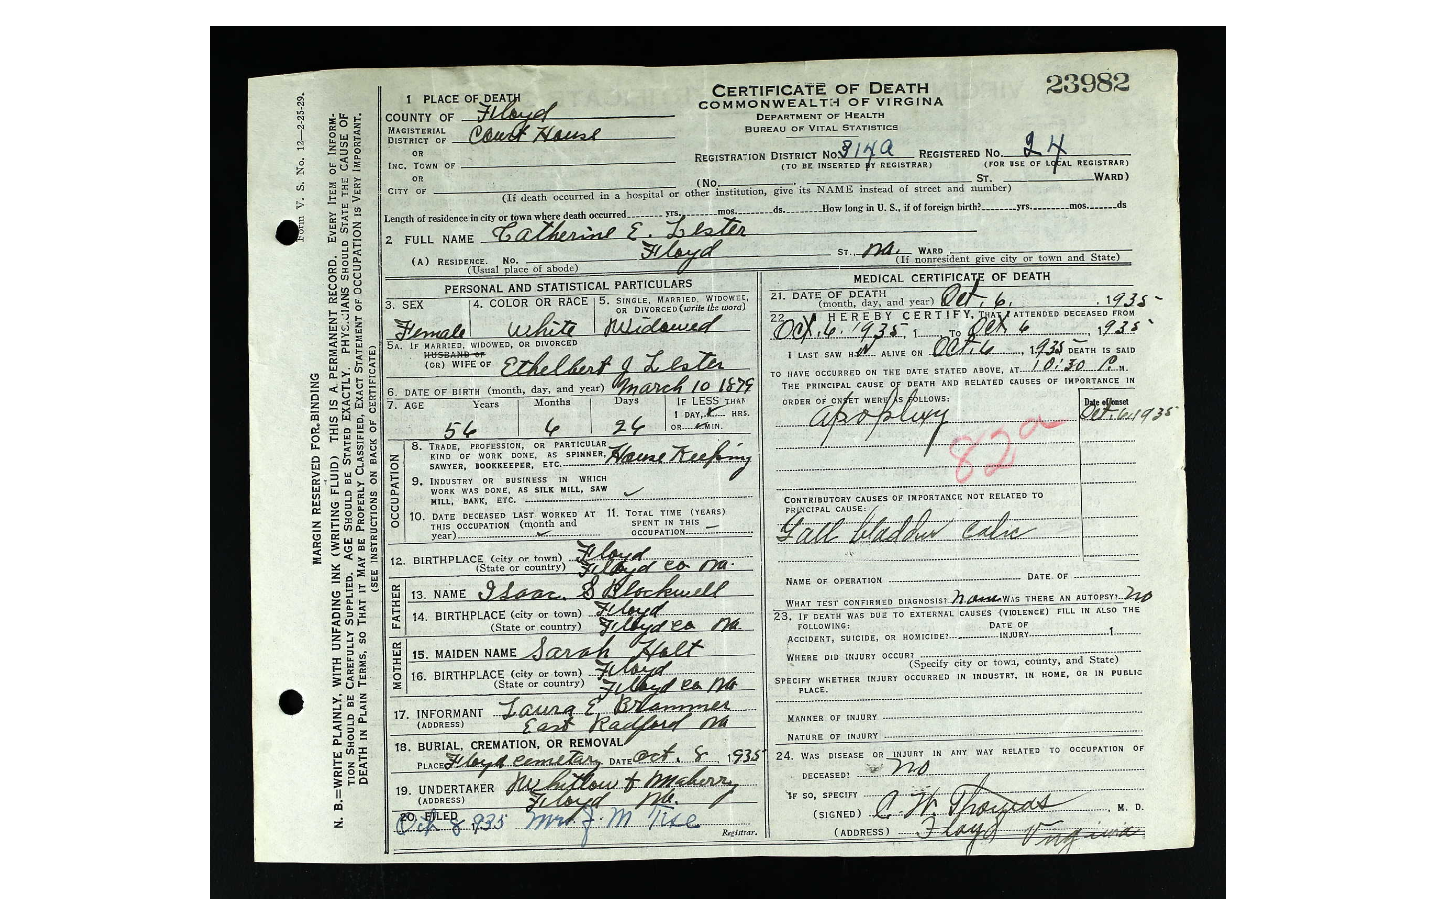 23982
CERTIFICATE OF DEATH
COMMONWEALTH OF VIRGINIA
DEPARTMENT OF HEALTH
BUREAU OF VITAL STATISTICS
1 PLACE OF DEATH
COUNTY OF Floyd
MAGISTERIAL DISTRICT OF Court House
OR
INC. TOWN OF
OR
CITY OF
REGISTRATION DISTRICT No. 314A REGISTERED No. 24
(TO BE INSERTED BY REGISTRAR) (FOR USE OF LOCAL REGISTRAR)
(No. ST. WARD)
(If death occurred in a hospital or other institution, give its NAME instead of street and number)
Length of residence in city or town where death occurred yrs. mos. ds. How long in U. S., if of foreign birth? yrs. mos. ds
2 FULL NAME Catherine E. Lester
(A) RESIDENCE. No. Floyd ST., Va. WARD
(Usual place of abode) (If nonresident give city or town and State)
PERSONAL AND STATISTICAL PARTICULARS
3. SEX Female
4. COLOR OR RACE White
5. SINGLE, MARRIED, WIDOWED, OR DIVORCED (write the word) Widowed
5A. IF MARRIED, WIDOWED, OR DIVORCED
HUSBAND OF
(OR) WIFE OF Ethelbert J Lester
6. DATE OF BIRTH (month, day, and year) March 10 1879
7. AGE Years Months Days IF LESS THAN
1 DAY, HRS.
56 6 26 OR MIN.
OCCUPATION
8. TRADE, PROFESSION, OR PARTICULAR
KIND OF WORK DONE, AS SPINNER,
SAWYER, BOOKKEEPER, ETC. House Keeping
9. INDUSTRY OR BUSINESS IN WHICH
WORK WAS DONE, AS SILK MILL, SAW
MILL, BANK, ETC.
10. DATE DECEASED LAST WORKED AT
THIS OCCUPATION (month and
year)
11. TOTAL TIME (YEARS)
SPENT IN THIS
OCCUPATION
12. BIRTHPLACE (city or town) Floyd
(State or country) Floyd co Va.
FATHER
13. NAME Isaac. S Blackwell
14. BIRTHPLACE (city or town) Floyd
(State or country) Floyd co Va.
MOTHER
15. MAIDEN NAME Sarah Holt
16. BIRTHPLACE (city or town) Floyd
(State or country) Floyd co Va
17. INFORMANT Laura E Brammer
(ADDRESS) East Radford Va
18. BURIAL, CREMATION, OR REMOVAL
PLACE Floyd cemetary DATE Oct. 8, 1935
19. UNDERTAKER Whitlow & Maberry
(ADDRESS) Floyd Va.
20. FILED Oct 8 935 Mrs J M Tise
Registrar.
MEDICAL CERTIFICATE OF DEATH
21. DATE OF DEATH
(month, day, and year) Oct. 6. , 1935
22 I HEREBY CERTIFY, THAT I ATTENDED DECEASED FROM
Oct. 6. 1935, 1 TO Oct 6 , 1935
I LAST SAW HER ALIVE ON Oct. 6 , 1935 DEATH IS SAID
TO HAVE OCCURRED ON THE DATE STATED ABOVE, AT 10:30 P. M.
THE PRINCIPAL CAUSE OF DEATH AND RELATED CAUSES OF IMPORTANCE IN
ORDER OF ONSET WERE AS FOLLOWS: Date of onset
apoplexy Oct. 6, 1935
82a
CONTRIBUTORY CAUSES OF IMPORTANCE NOT RELATED TO
PRINCIPAL CAUSE:
Gall bladder colic
NAME OF OPERATION DATE OF
WHAT TEST CONFIRMED DIAGNOSIS? none WAS THERE AN AUTOPSY? no
23. IF DEATH WAS DUE TO EXTERNAL CAUSES (VIOLENCE) FILL IN ALSO THE
FOLLOWING: DATE OF
ACCIDENT, SUICIDE, OR HOMICIDE? INJURY 1
WHERE DID INJURY OCCUR?
(Specify city or town, county, and State)
SPECIFY WHETHER INJURY OCCURRED IN INDUSTRY, IN HOME, OR IN PUBLIC
PLACE.
MANNER OF INJURY
NATURE OF INJURY
24. WAS DISEASE OR INJURY IN ANY WAY RELATED TO OCCUPATION OF
DECEASED? no
IF SO, SPECIFY
(SIGNED) C. W. Thomas , M. D.
(ADDRESS) Floyd Virginia
Form V. S. No. 12—2-25-29.
MARGIN RESERVED FOR BINDING
N. B.=WRITE PLAINLY, WITH UNFADING INK (WRITING FLUID) THIS IS A PERMANENT RECORD. EVERY ITEM OF INFORM-
TION SHOULD BE CAREFULLY SUPPLIED. AGE SHOULD BE STATED EXACTLY. PHYSICIANS SHOULD STATE THE CAUSE OF
DEATH IN PLAIN TERMS, SO THAT IT MAY BE PROPERLY CLASSIFIED, EXACT STATEMENT OF OCCUPATION IS VERY IMPORTANT.
(SEE INSTRUCTIONS ON BACK OF CERTIFICATE)